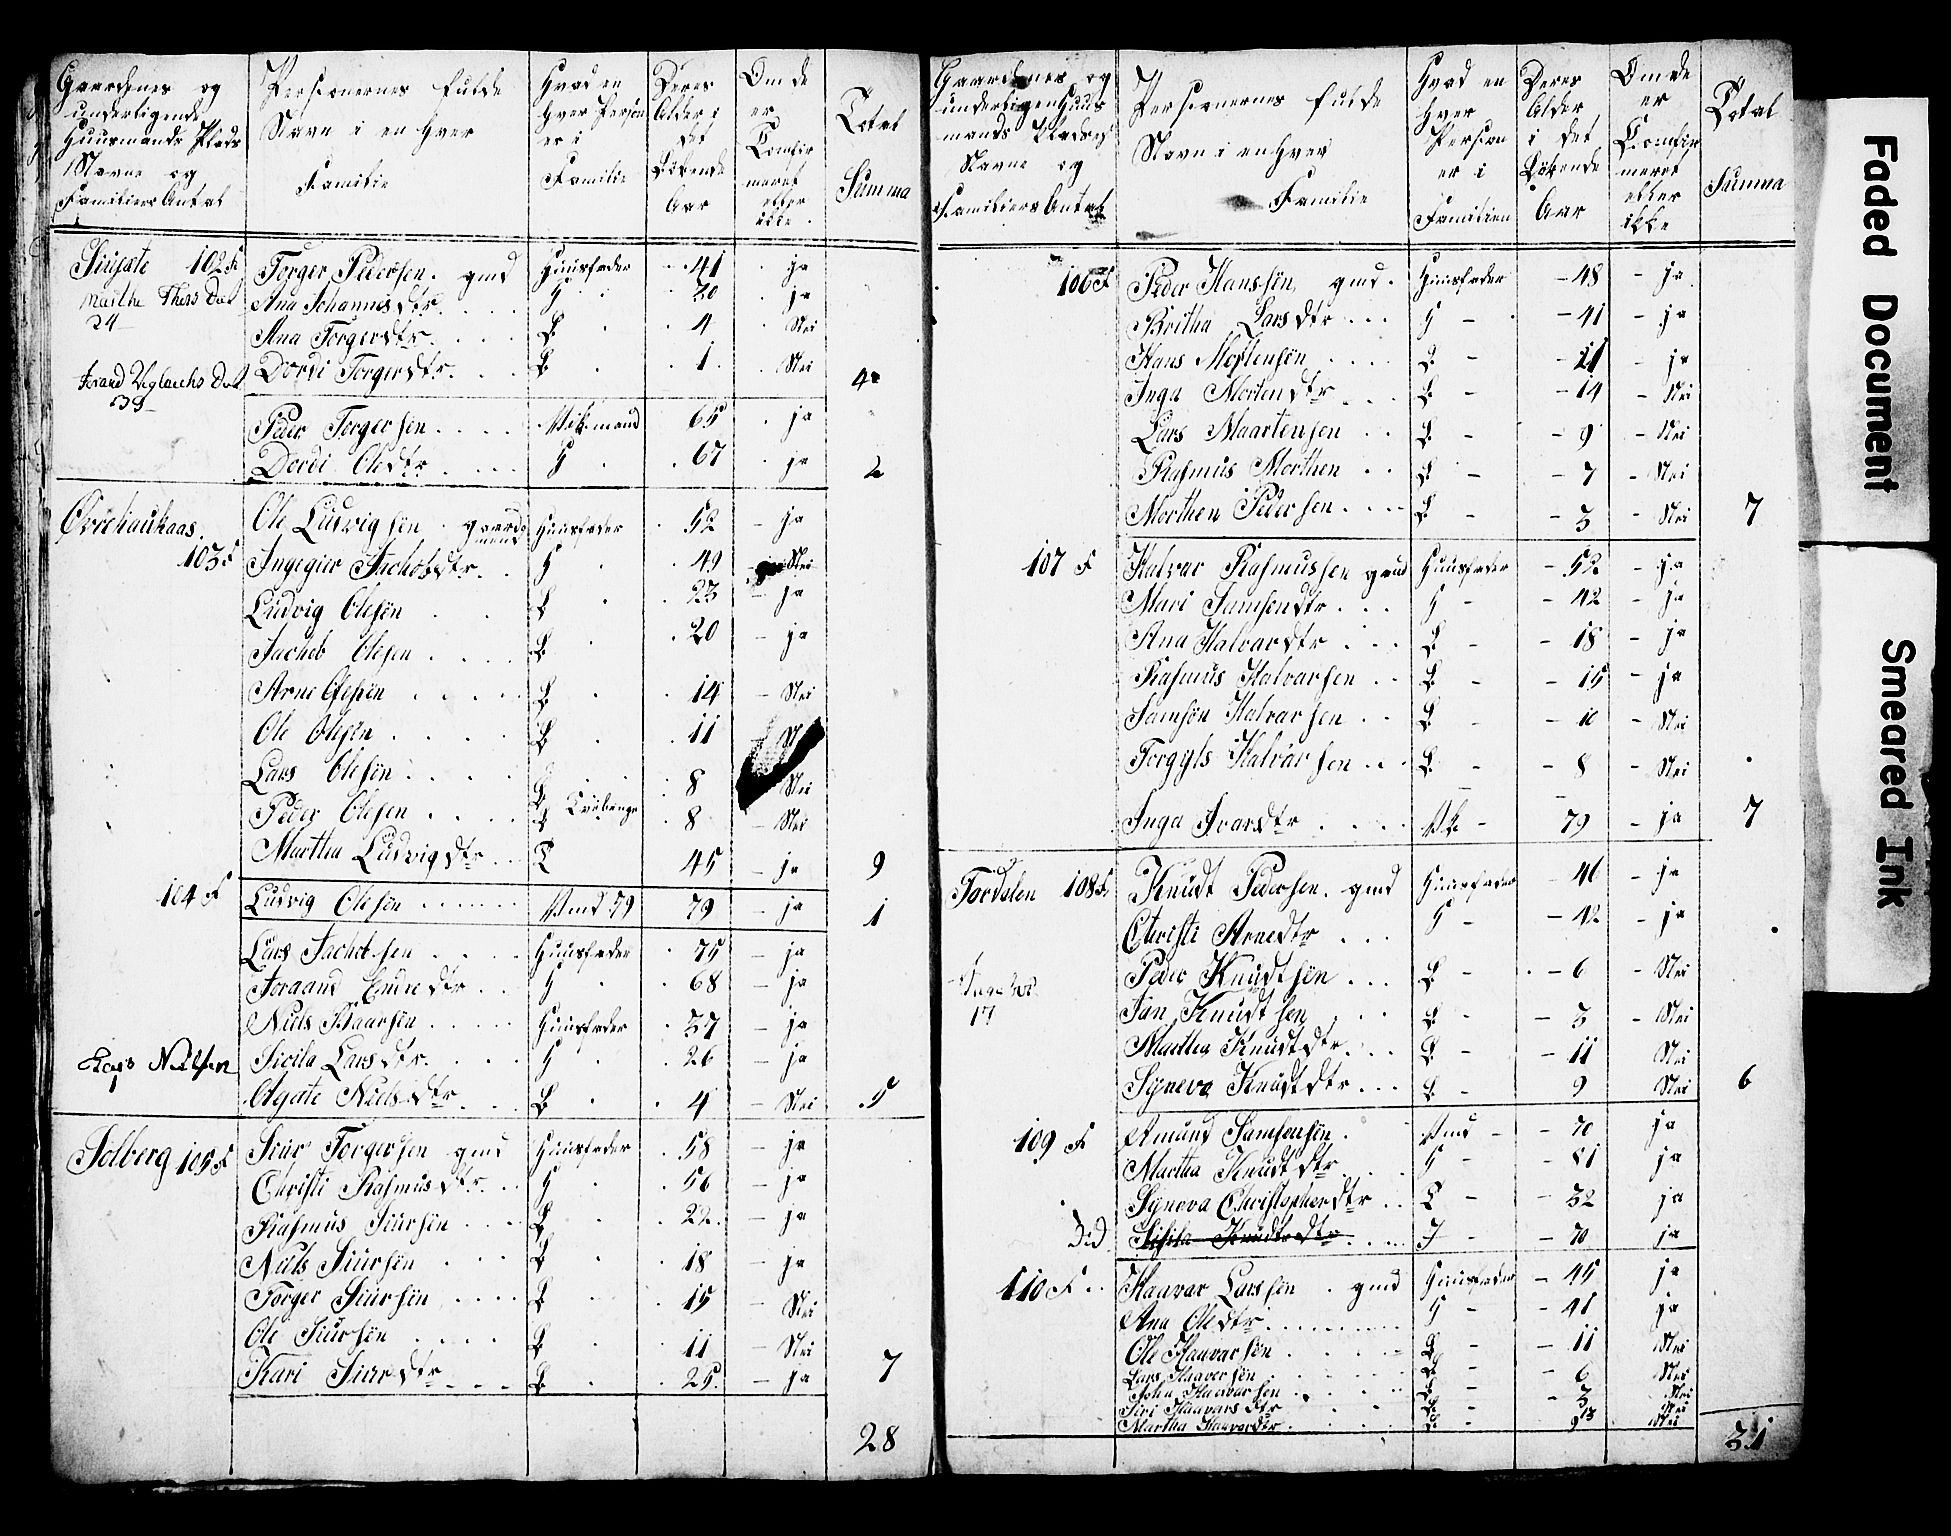 Gaardenes og
underligende
Huusmands Plads
Navne og
Familiers Antal
Personernes fulde
Navn i en hver
Familie
Hvad en
hver Person
er i
Familie
Deres
Alder i
det
Løbende
Aar
Om de
er
Comfir
meret
eller
ikke.
Total
Summa
102 F Torger Pedersen. gmd Huusfader 41 ja
Marthe
24
Ana Johannisdtr. H 20 ja
Ana Torgersdtr. B 4 Nei
Dordi Torgersdtr. B 1 Nei 4
39
Peder Torgersen 65 ja
Dordi Oledtr H 67 ja 2
103 F Ole Ludvigsen gaardmand Huusfader 52 ja
Ingegier Jachobsdtr H 49 Nei
Ludvig Olesen B 23 ja
Jachob Olesen B 20 ja
Arne Olesen B 14 Nei
Ole Olesen B 11 N
Lars Olesen B 8 Nei
Peder Olesen B 8 Nei
Martha Ludvigdtr T 45 ja 9
104 F Ludvig Olesen 79 79 ja 1
Lars Jachobsen Huusfader 75 ja
H 68 ja
Niels Huusfader 37 ja
Nielsen
1
Sicila Larsdtr. H 26 ja
Agate Nielsdtr B 4 Nei 5
Solberg 105 F Siur Torgersen gmd Huusfader 58 ja
Christi Rasmusdtr. H 56 ja
Rasmus Siursen B 22. ja
Niels Siursen B 18 ja
Torger Siursen B 15 Nei
Ole Siursen B 11 Nei
Kari Siursdtr B 25. ja 7
28
Gaardenes og
underligen Huus
mands Pladses
Navne og
Familiers Antal
Personernes fulde
Navn i en hver
Familie
Hvad en
hver
Person
er i
Familien
Deres
Alder
i det
Løbende
Aar
Om de
er
Comfir
meret
eller
ikke
Total
Summa
106 F Peder Hanssen gmd. Huusfader 48 ja
Britha Larsdtr H 41 ja
Hans Mortensen B 21 ja
Inga Mortendtr B 14 Nei
Lars Maartensen B 9 Nei
Rasmus Morthen B 7 Nei
Morthen Pedersen B 3 Nei 7
107 F Halvar Rasmussen gmd Huusfader 52 ja
Mari Samsendtr H 42 ja
Ana Halvardtr B 18 ja
Rasmus Halvarsen B 15 ja
Samsen Halvarsen B Nei
Torgyls Halvarsen B 8 Nei
Inga Ivarsdtr 79 ja 7
Tordalen 108 F Knudt Pedersen. gmd Huusfader 46 ja
Christi Arnedtr H 42 ja
Peder Knudtsen B 6 Nei
17
Jan Knudtsen B 3 Nei
Martha Knudtdtr B 11 Nei
Syneva Knudtdtr B 9 Nei 6
109 F Amund Samsensen 70 ja
Martha Knudtdtr H ja
Syneva Christopherdtr T 32 ja
Did Sisila Knudtsdtr I 70 ja
110 F Haavar Larssen gmd Huusfader 45 ja
Ana Oledtr H 41 ja
Ole Haavarsen B 11 Nei
Lars Haaversen B 6 Nei
John Haavarsen B 3 Nei
Siri Haavarsdtr B 13 Nei
Martha Haavardtr B 9 Nei
31
Faded Document
Smeared Ink